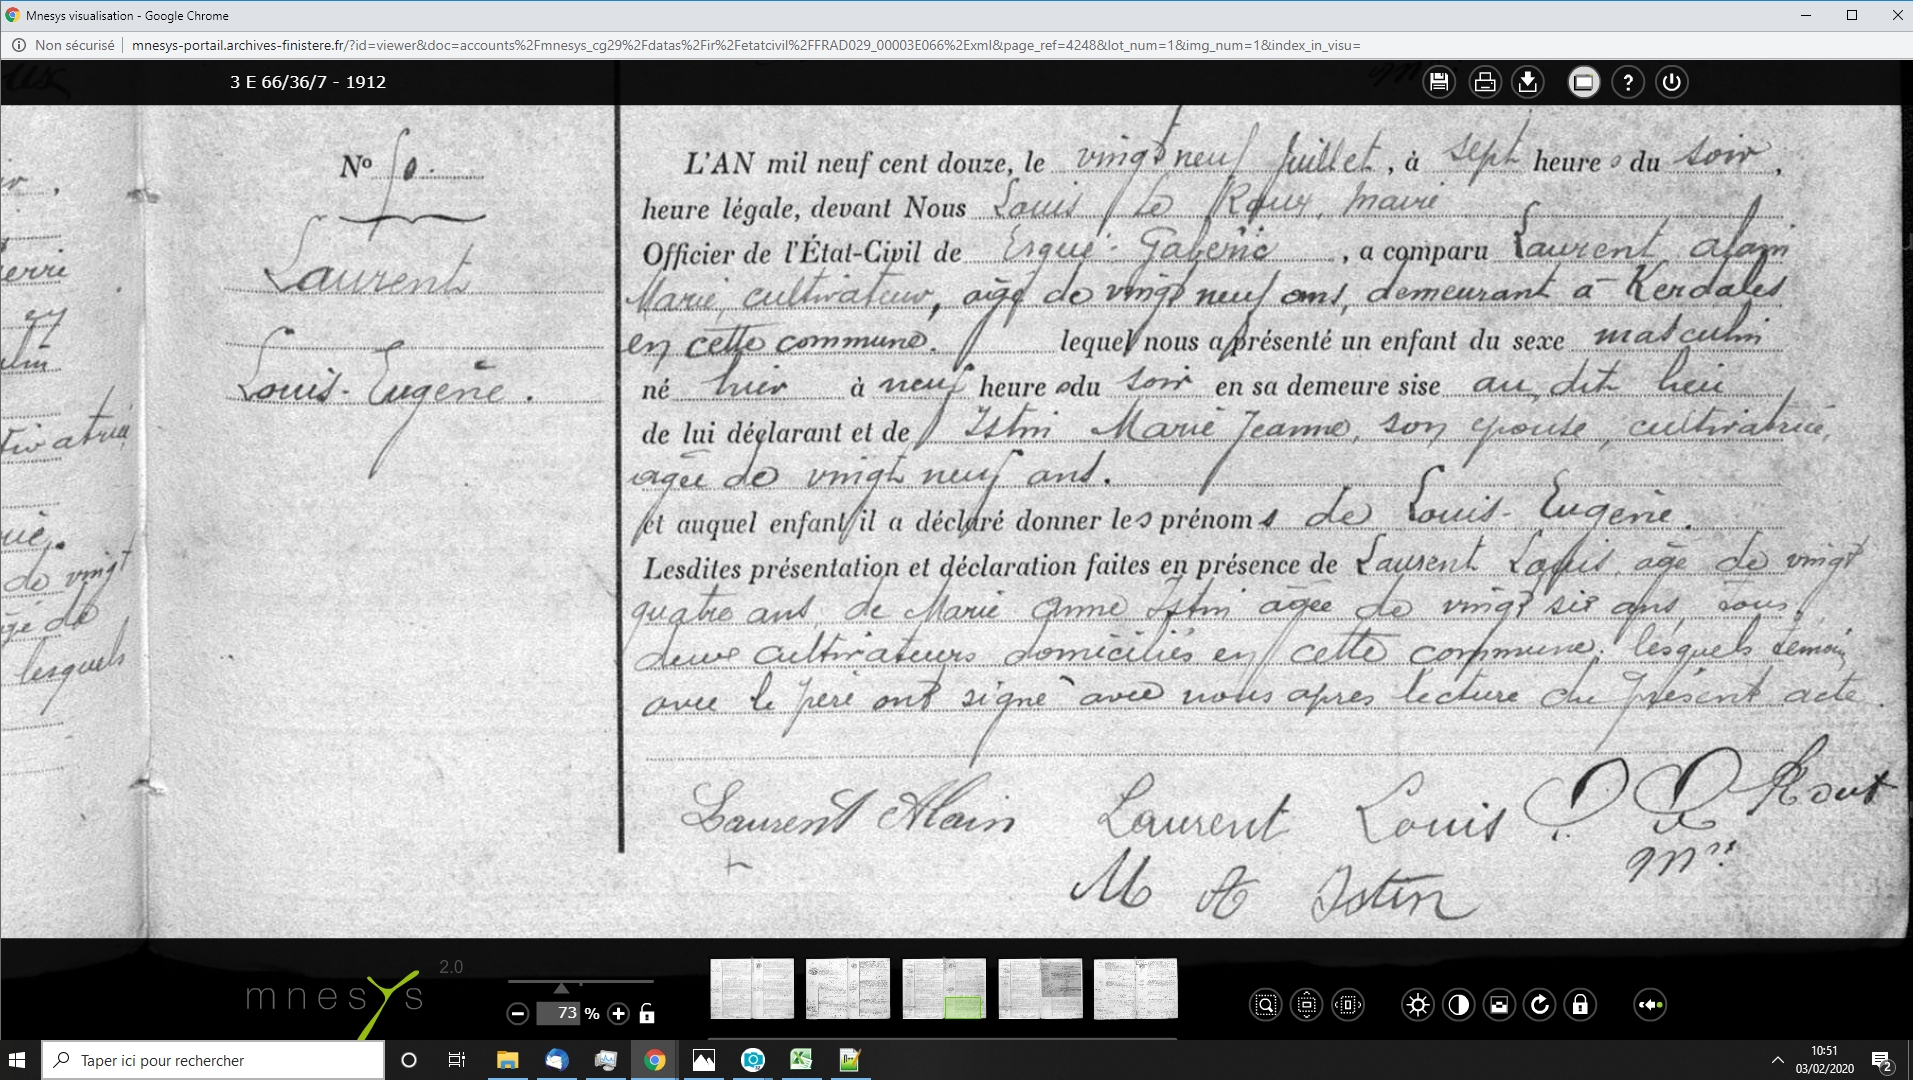 Mnesys visualisation - Google Chrome
Non sécurisé | mnesys-portail.archives-finistere.fr/?id=viewer&doc=accounts%2Fmnesys_cg29%2Fdatas%2Fir%2Fetatcivil%2FFRAD029_00003E066%2Exml&page_ref=4248&lot_num=1&img_num=1&index_in_visu=
3 E 66/36/7 - 1912
erri
tivatrice
de vingt
lesquels
N°
Laurent
Louis-Eugène.
L'AN mil neuf cent douze, le vingt neuf Juillet, à sept heures du soir,
heure légale, devant Nous Louis Le Roux, maire
Officier de l'État-Civil de Ergué-Gabéric, a comparu Laurent alain
Marie, cultivateur, âgé de vingt neuf ans, demeurant à Kerdalès
en cette commune. lequel nous a présenté un enfant du sexe masculin
né hier à neuf heures du soir en sa demeure sise au dit lieu
de lui déclarant et de Istin Marie Jeanne, son épouse, cultivatrice,
agée de vingt neuf ans.
et auquel enfant il a déclaré donner les prénoms de Louis-Eugène.
Lesdites présentation et déclaration faites en présence de Laurent Louis, agé de vingt
quatre ans, de Marie Anne Istin âgée de vingt six ans, tous
deux cultivateurs domiciliés en cette commune; lesquels témoins
avec le père ont signé avec nous après lecture du présent acte.
Laurent Alain Laurent Louis Roux
M A Istin
mnesys 2.0
73 %
Taper ici pour rechercher
10:51
03/02/2020
2